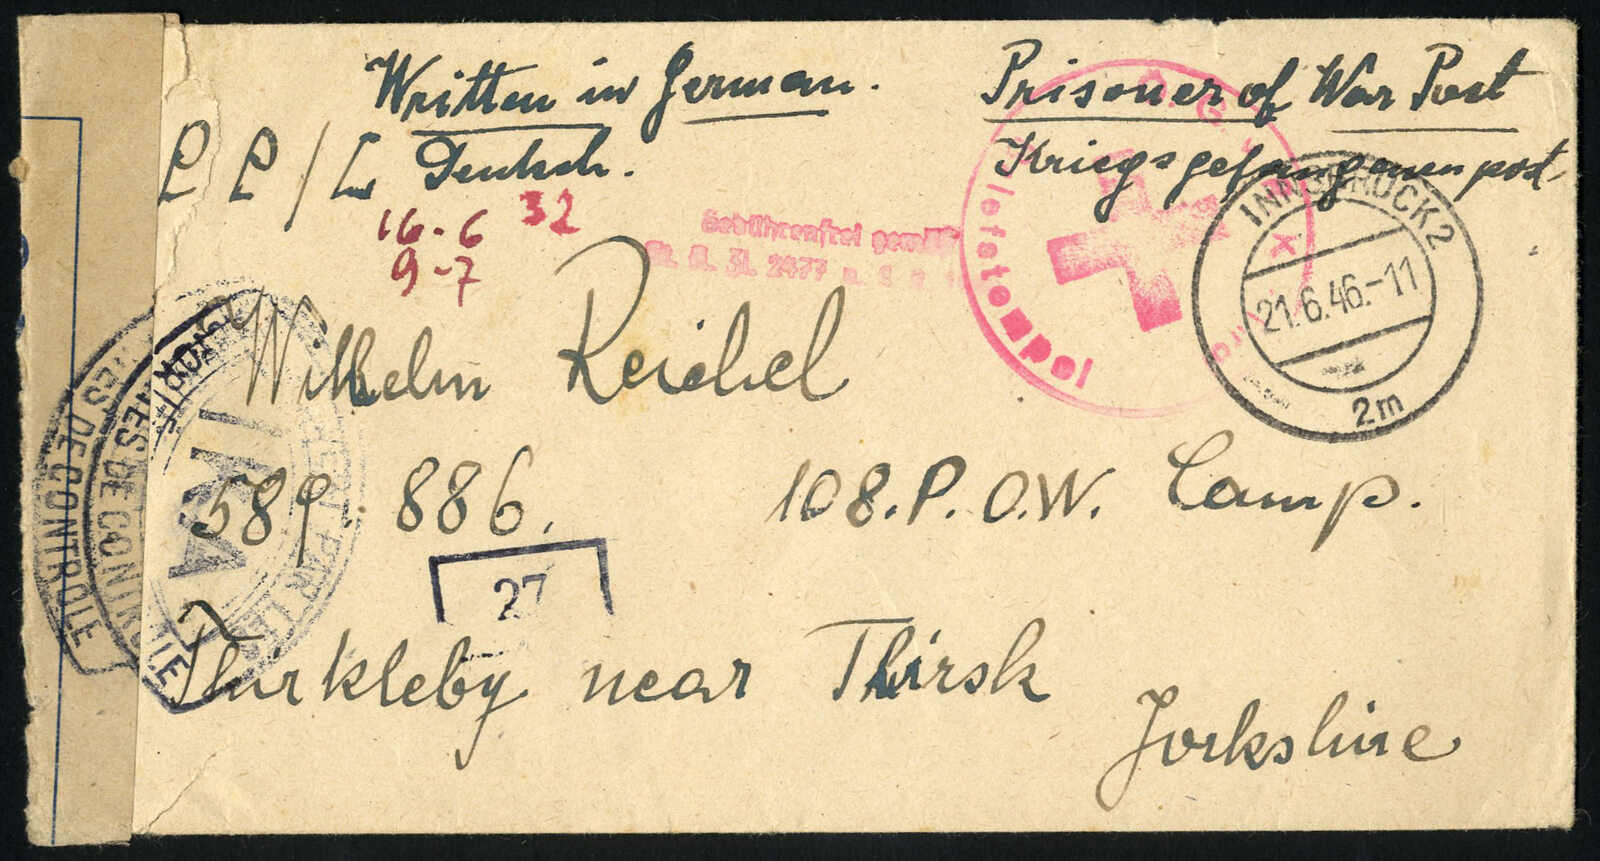 Written in German.
Prisoner of War Post
P P / L Deutsch.
Kriegsgefangenenpost.
16-6 32
9-7
Gebührenfrei gemäß
2477
INNSBRUCK 2
21.6.46.-11
2m
Wilhelm Reichel
589. 886.
108. P. O. W. Camp.
27
Thirkleby near Thirsk
Yorkshire
DE CONTROLE
DE CONTROLE
PAR LES